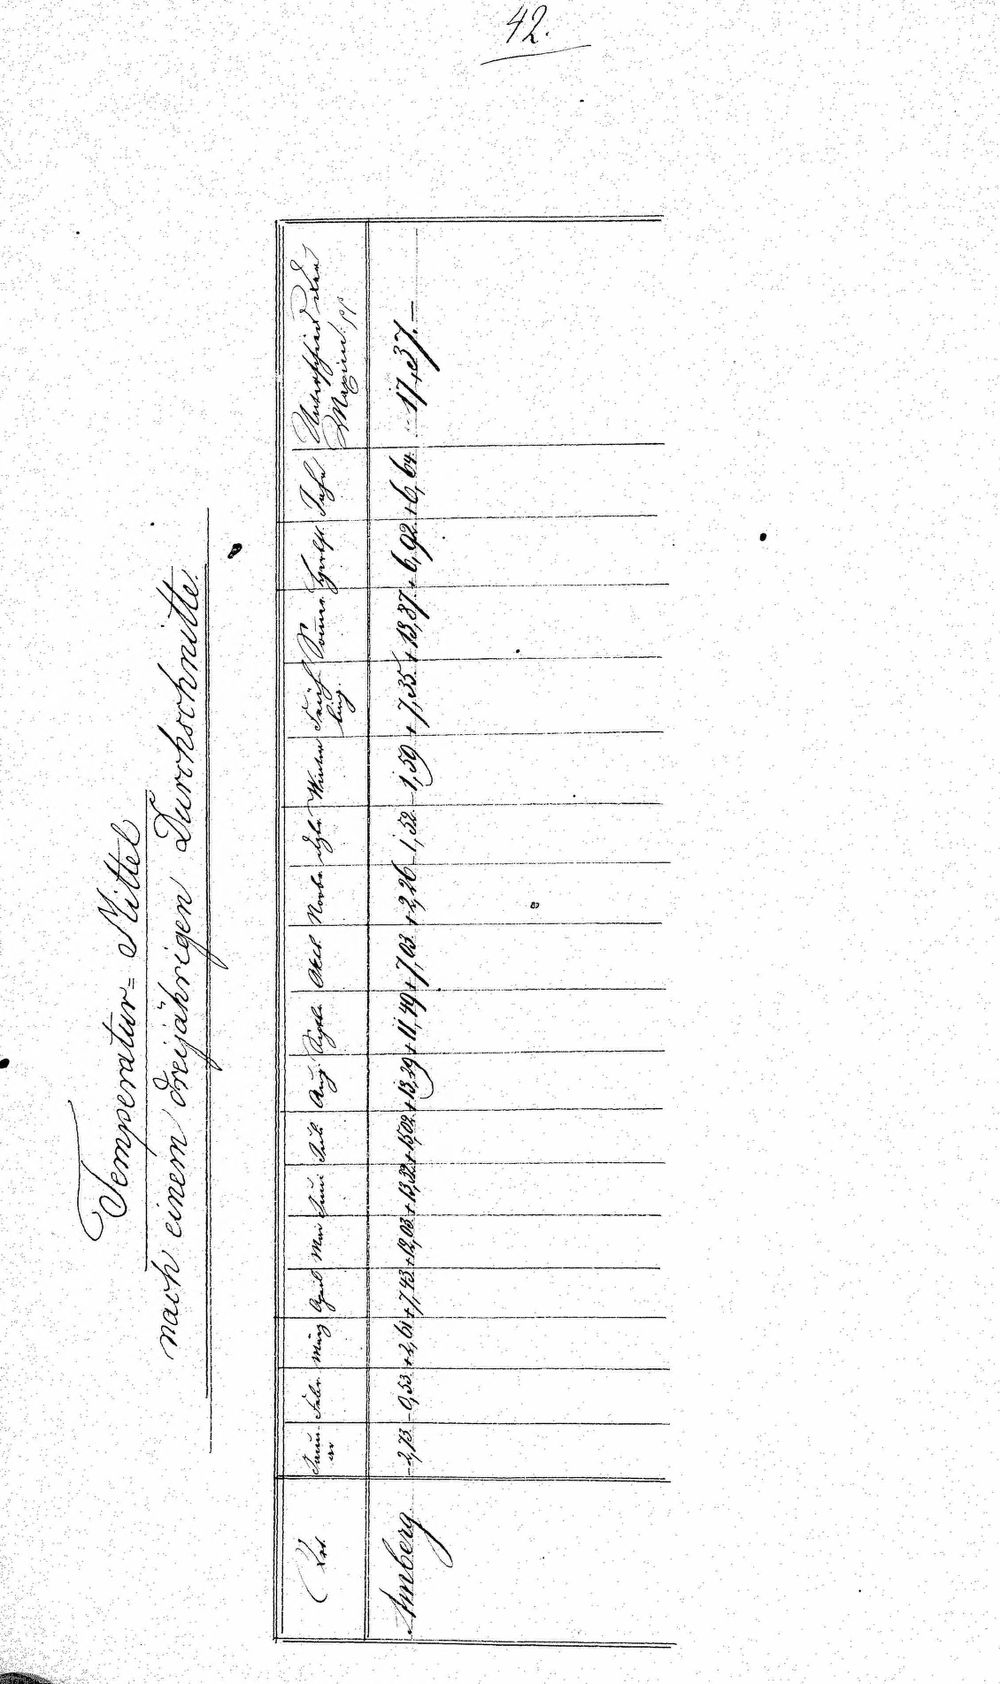 42.
Temperatur-Mittel
nach einem dreijährigen Durchschnitte.
Ort Januar Febr. März April Mai Juni Juli Aug. Septb. Oktb. Novbr. Dzbr. Winter Frühling. Sommer Herbst Jahr Unterschied der Maxim. pp
Amberg -2,73 -0,53 +2,61 +7,43 +12,03 +13,32 +15,02 +13,29 +11,49 +7,03 +2,26 -1,52 -1,59 +7,35 +13,87 +6,92 +6,64 17,37.—